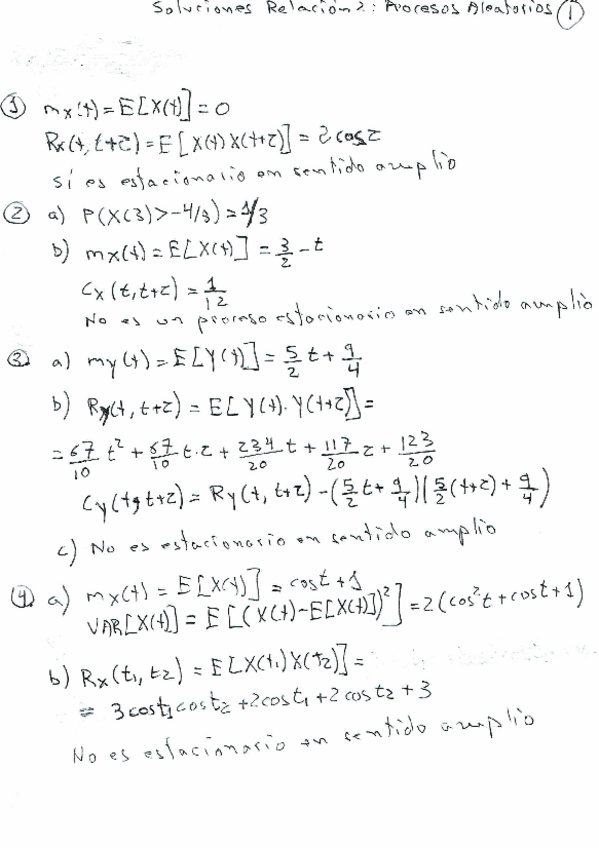 Soluciones Relación 2: Procesos Aleatorios ①
① mx(t) = E[X(t)] = 0
Rx(t, t+z) = E[X(t) X(t+z)] = 2 cos z
Sí es estacionario en sentido amplio
② a) P(X(3) > -4/3) = 1/3
b) mx(t) = E[X(t)] = 3/2 - t
Cx(t, t+z) = 1/12
No es un proceso estacionario en sentido amplio
③ a) my(t) = E[Y(t)] = 5/2 t + 9/4
b) Ry(t, t+z) = E[Y(t). Y(t+z)] =
= 67/10 t² + 67/10 t.z + 234/20 t + 117/20 z + 123/20
Cy(t, t+z) = Ry(t, t+z) - (5/2 t + 9/4)(5/2 (t+z) + 9/4)
c) No es estacionario en sentido amplio
④ a) mx(t) = E[X(t)] = cos t + 1
VAR[X(t)] = E[(X(t) - E[X(t)])²] = 2(cos² t + cos t + 1)
b) Rx(t1, t2) = E[X(t1) X(t2)] =
= 3 cos t1 cos t2 + 2 cos t1 + 2 cos t2 + 3
No es estacionario en sentido amplio